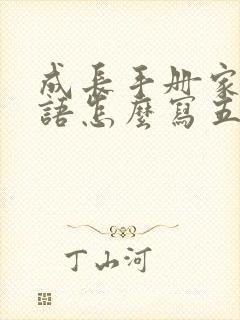 成長手册家
語怎麼寫五
丁山河